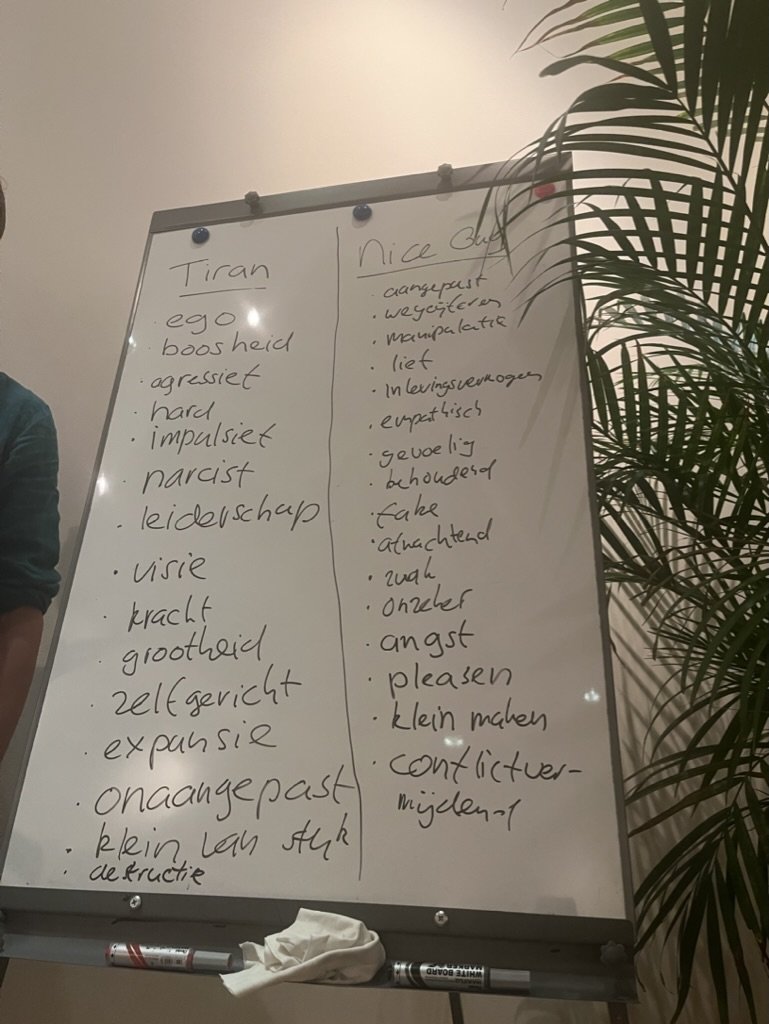 Tiran
ego
boosheid
agressief
hard
impulsief
narcist
leiderschap
visie
kracht
grootheid
zelfgericht
expansie
onaangepast
klein van stuk
destructie
Nice Guy
aangepast
wegcijferen
manipulatie
lief
Inlevingsvermogen
empathisch
gevoelig
behoudend
fake
afwachtend
zwak
onzeker
angst
pleasen
klein maken
conflictver-
mijdend
WHITE BOARD
MARKER